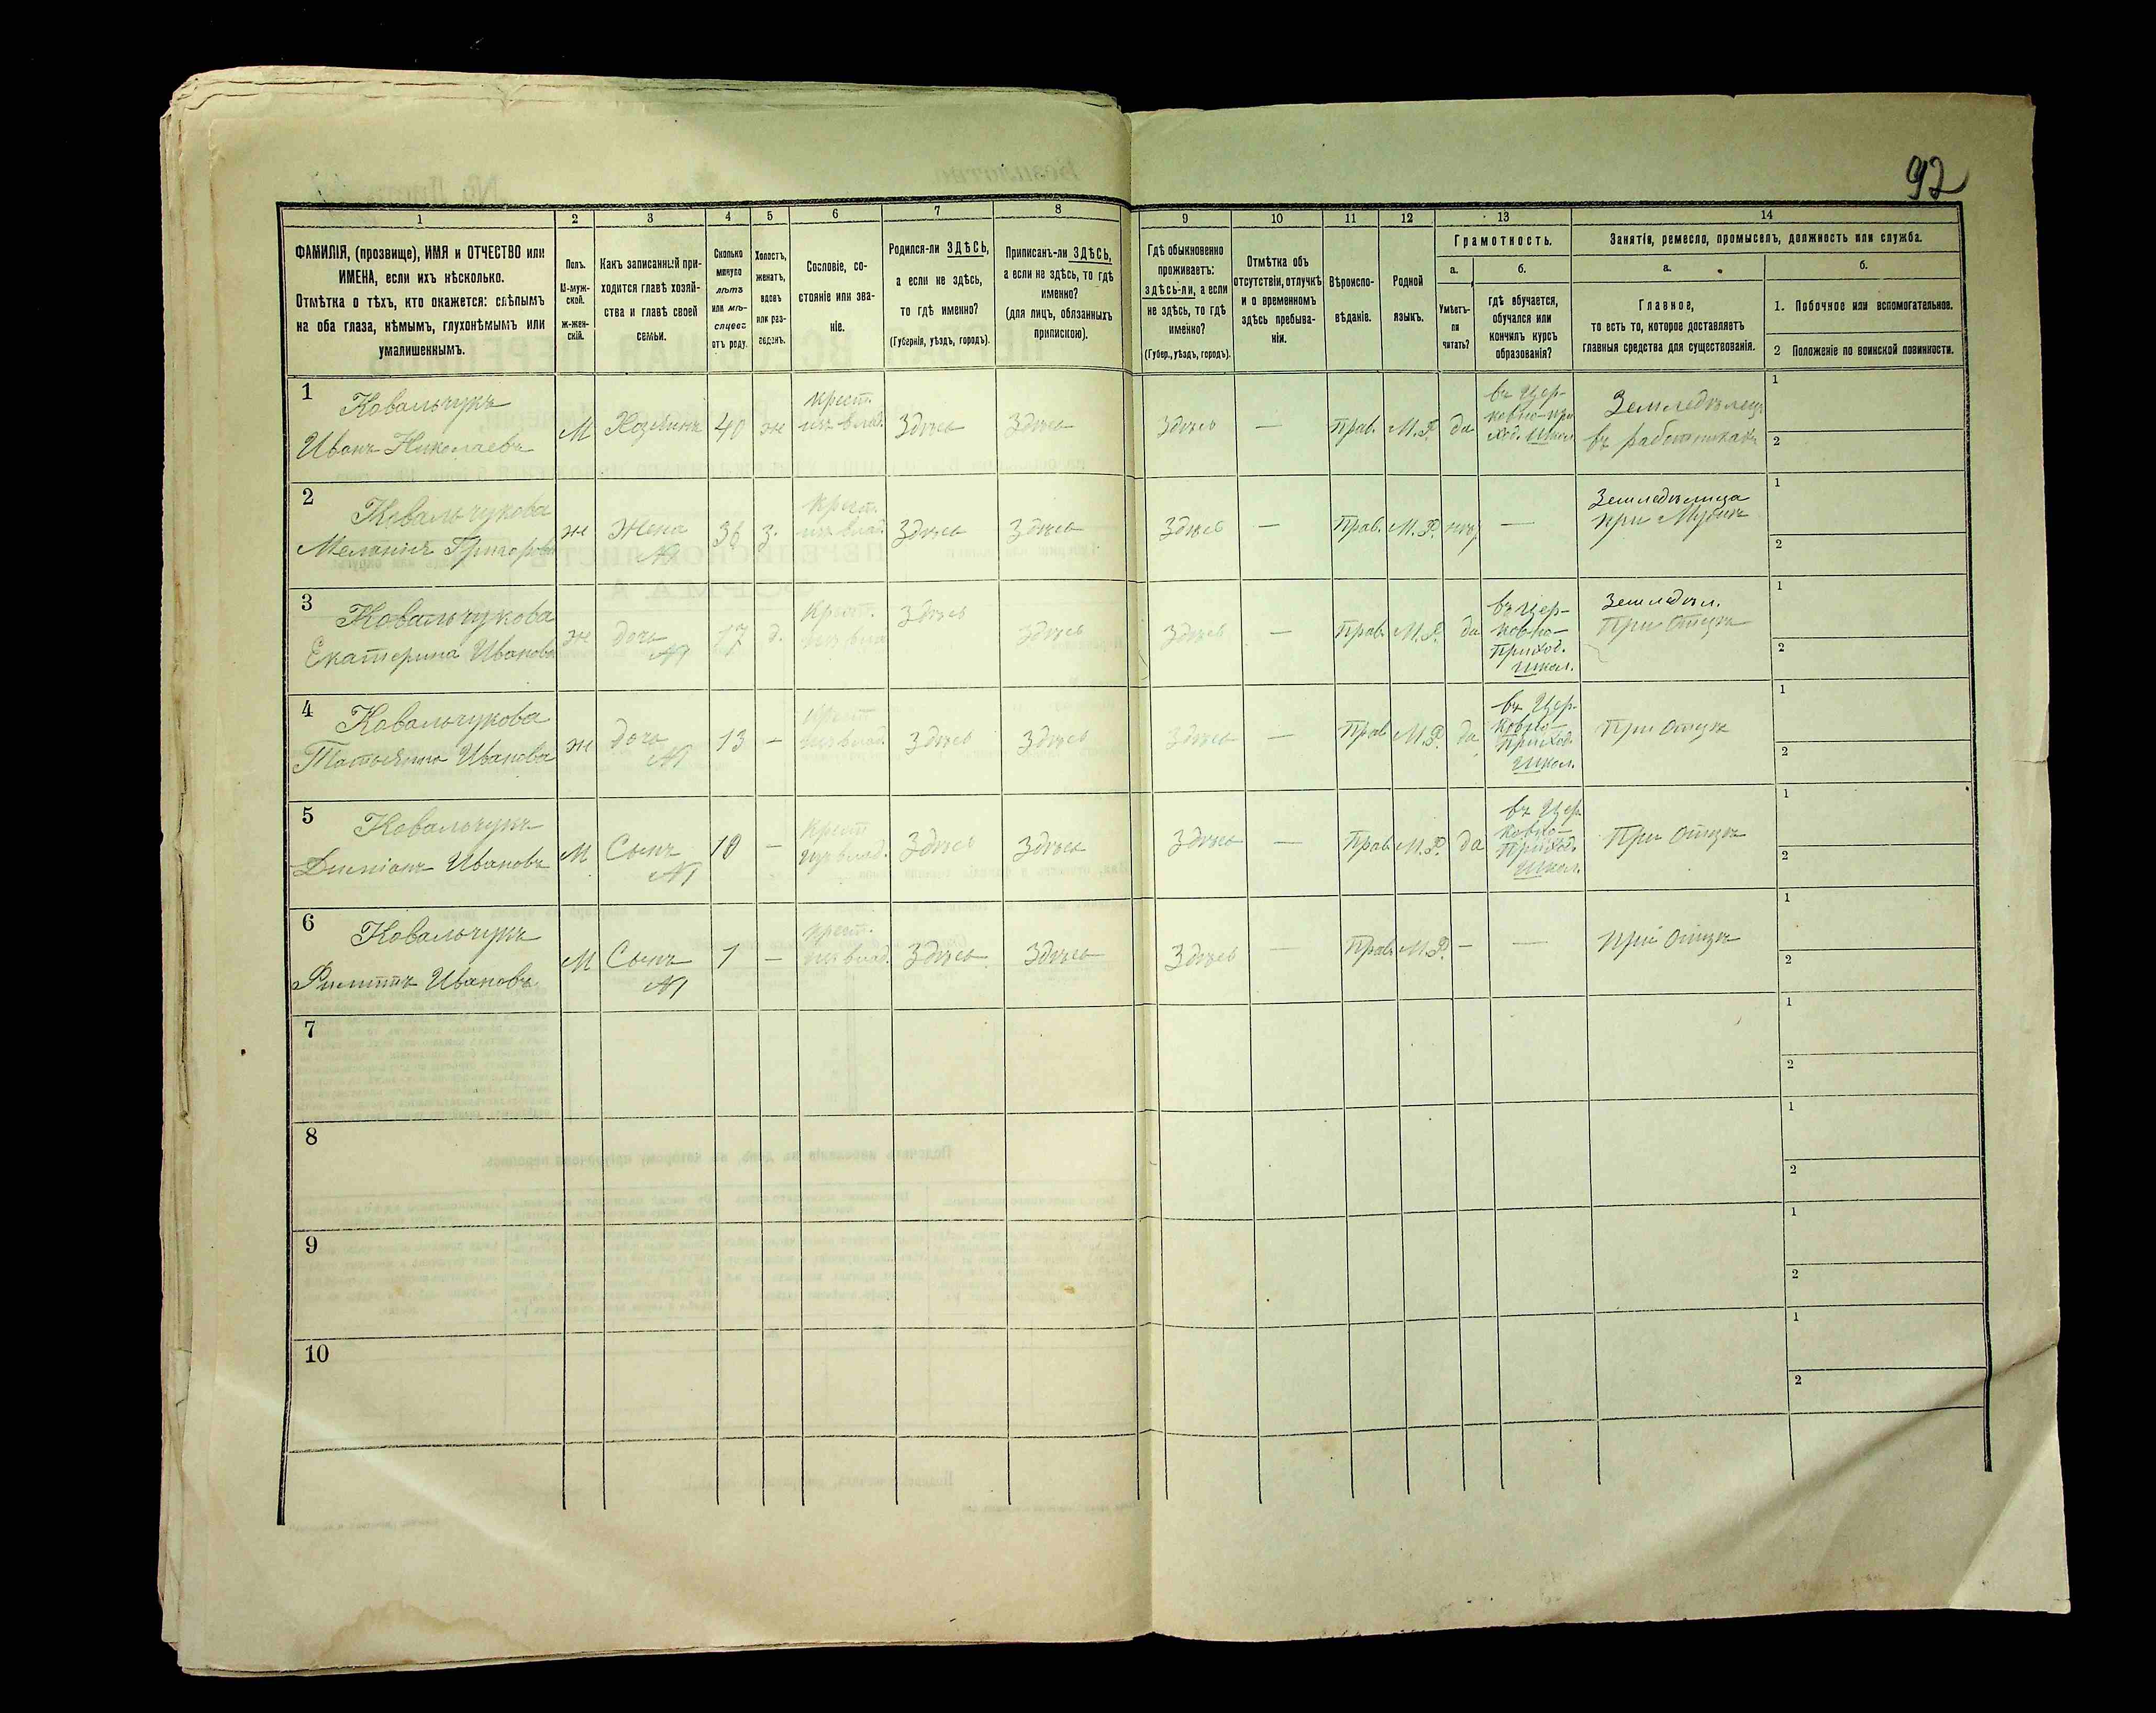 92
1
2
3
4
5
6
7
8
9
10
11
12
13
14
ФАМИЛІЯ, (прозвище), ИМЯ и ОТЧЕСТВО или
ИМЕНА, если ихъ нѣсколько.
Отмѣтка о тѣхъ, кто окажется: слѣпымъ
на оба глаза, нѣмымъ, глухонѣмымъ или
умалишеннымъ.
Полъ.
М-муж-
ской.
ж-жен-
скій.
Какъ записанный при-
ходится главѣ хозяй-
ства и главѣ своей
семьи.
Сколько
минуло
лѣтъ
или мѣ-
сяцевъ
отъ роду.
Холостъ,
женатъ,
вдовъ
или раз-
веденъ.
Сословіе, со-
стояніе или зва-
ніе.
Родился-ли ЗДѢСЬ,
а если не здѣсь,
то гдѣ именно?
(Губернія, уѣздъ, городъ).
Приписанъ-ли ЗДѢСЬ,
а если не здѣсь, то гдѣ
именно?
(для лицъ, обязанныхъ
припискою).
Гдѣ обыкновенно
проживаетъ:
здѣсь-ли, а если
не здѣсь, то гдѣ
именно?
(Губер., уѣздъ, городъ).
Отмѣтка объ
отсутствіи, отлучкѣ
и о временномъ
здѣсь пребыва-
ніи.
Вѣроиспо-
вѣданіе.
Родной
языкъ.
Грамотность.
а.
Умѣетъ-
ли
читать?
б.
гдѣ обучается,
обучался или
кончилъ курсъ
образованія?
Занятіе, ремесло, промыселъ, должность или служба.
а.
Главное,
то есть то, которое доставляетъ
главныя средства для существованія.
б.
1. Побочное или вспомогательное.
2 Положеніе по воинской повинности.
1
Ковальчукъ
Иванъ Николаевъ
М
Хозяинъ
40
ж
крест.
изъ влад.
Здѣсь
Здѣсь
Здѣсь
—
Прав.
М.Р.
да
въ Цер-
ковно-при
ход. Школ.
Земледѣлецъ
въ работникахъ
1
2
2
Ковальчукова
Меланія Григорова
ж
Жена
№1
36
з.
Крест.
изъ влад.
Здѣсь
Здѣсь
Здѣсь
—
Прав.
М.Р.
нѣт
—
Земледѣлица
при Мужѣ
1
2
3
Ковальчукова
Екатерина Иванова
ж
дочь
№1
17
д.
Крест.
изъ влад
Здѣсь
Здѣсь
Здѣсь
—
Прав.
М.Р.
да
въ Цер-
ковно-
Приход.
Школ.
Земледѣл.
При Отцѣ
1
2
4
Ковальчукова
Татьяна Иванова
ж
дочь
№1
13
—
крест
изъ влад.
Здѣсь
Здѣсь
Здѣсь
—
Прав
М.Р.
да
въ Цер-
ковно-
Приход.
Школ.
При Отцѣ
1
2
5
Ковальчукъ
Диміанъ Ивановъ
М
Сынъ
№1
10
—
Крест
изъ влад.
Здѣсь
Здѣсь
Здѣсь
—
Прав.
М.Р.
да
въ Цер
ковно-
Приход.
Школ.
При Отцѣ
1
2
6
Ковальчукъ
Филиппъ Ивановъ
М
Сынъ
№1
1
—
крест.
изъ влад.
Здѣсь
Здѣсь
Здѣсь
—
Прав.
М.Р.
—
—
При Отцѣ
1
2
7
1
2
8
1
2
9
1
2
10
1
2